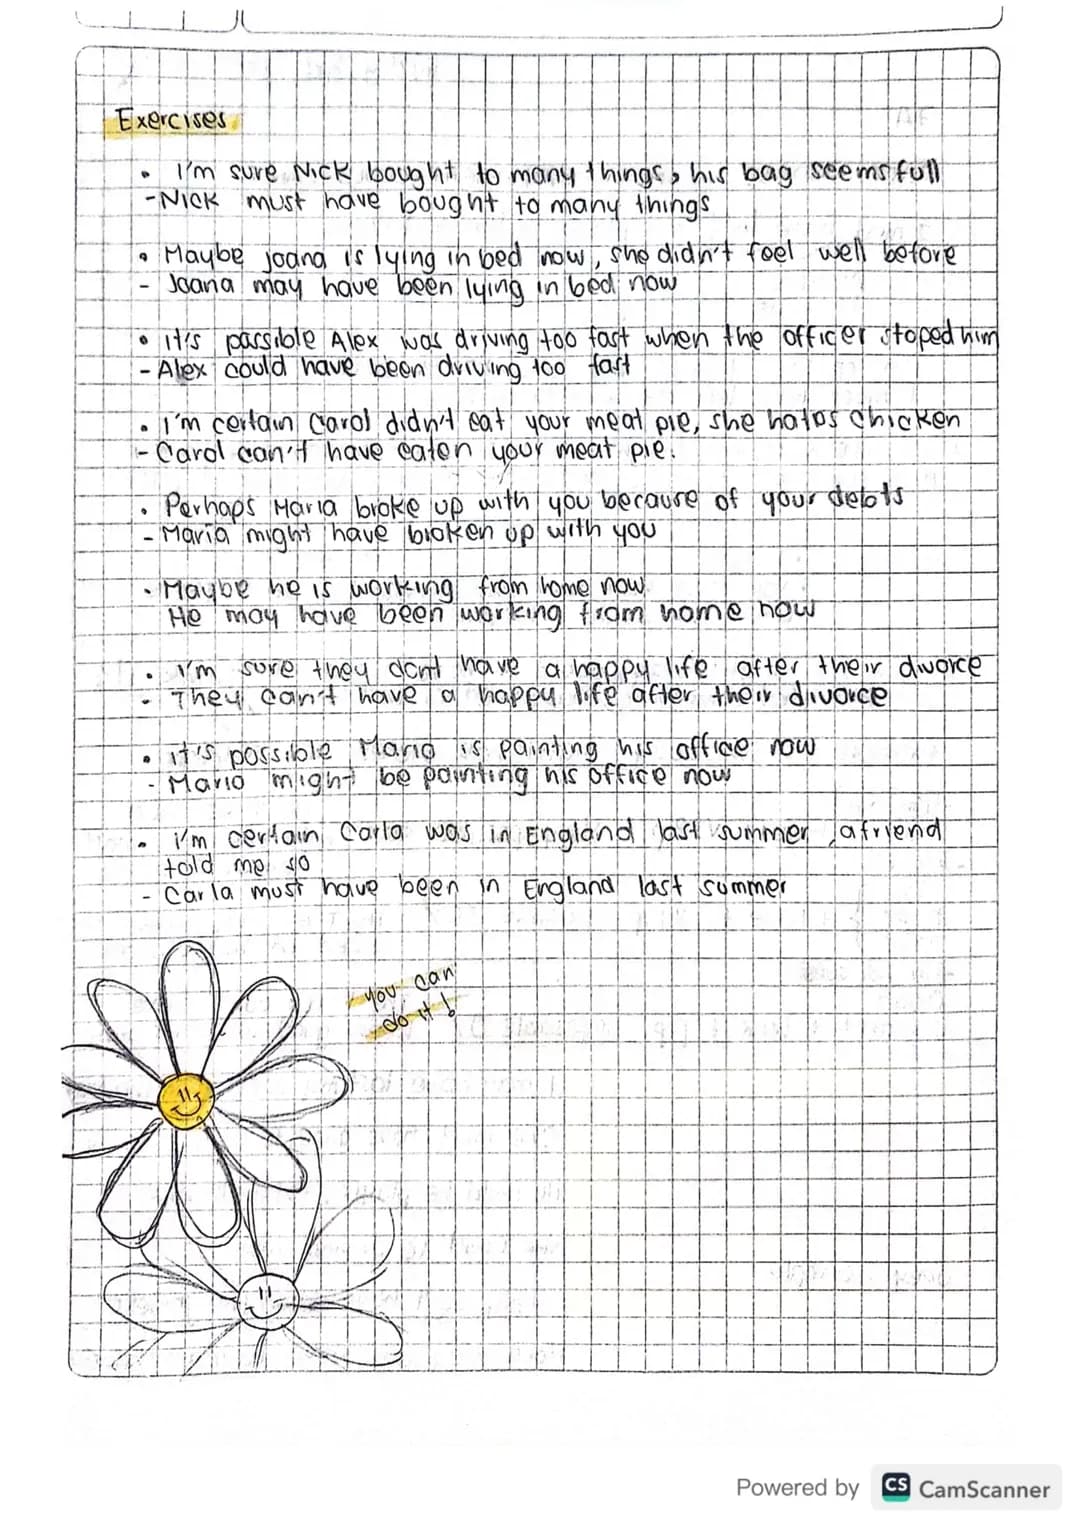 Exercises
• I'm sure Nick bought to many things, his bag seems full
- Nick must have bought to many things
• Maybe joana is lying in bed now, she didn't feel well before
- Joana may have been lying in bed now
• It's possible Alex was driving too fast when the officer stoped him
- Alex could have been driving too fast
• I'm certain Carol didn't eat your meat pie, she hates chicken
- Carol can't have eaten your meat pie.
• Perhaps Maria broke up with you because of your debts
- Maria might have broken up with you
• Maybe he is working from home now
He may have been working from home now
• I'm sure they dont have a happy life after their divorce
- They can't have a happy life after their divorce
• it's possible Mario is painting his office now
- Mario might be painting his office now
• i'm certain Carla was in England last summer, a friend
told me so
- Carla must have been in England last summer
you can
do it!
Powered by CS CamScanner